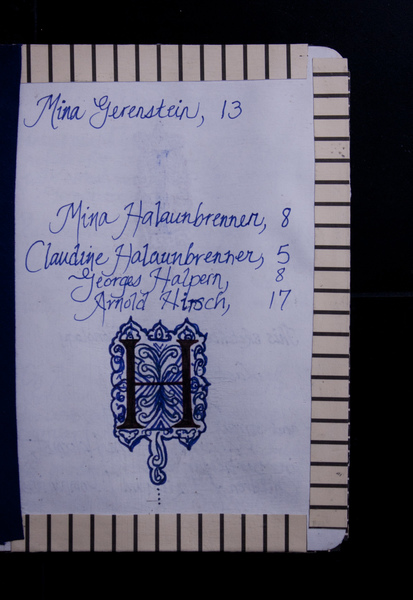 Mina Gerenstein, 13
Mina Halaunbrenner, 8
Claudine Halaunbrenner, 5
Georges Halpern, 8
Arnold Hirsch, 17
H